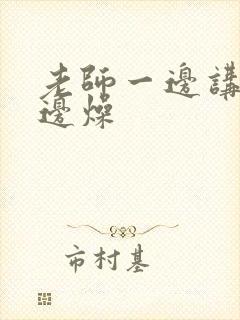 老師一邊講
邊燥
市村基